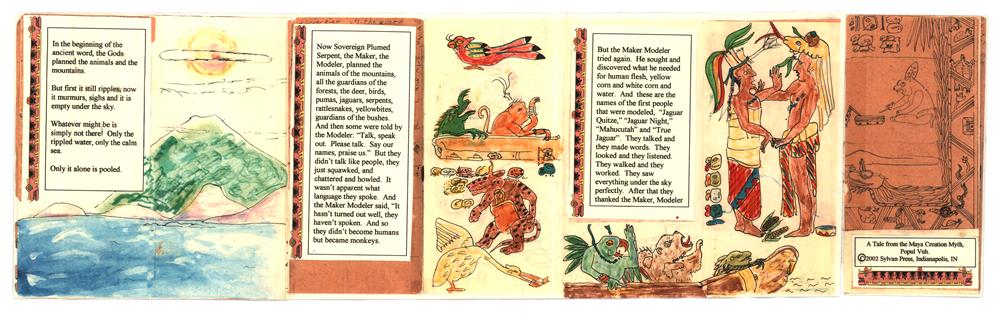 In the beginning of the
ancient word, the Gods
planned the animals and the
mountains.
But first it still ripples, now
it murmurs, sighs and it is
empty under the sky.
Whatever might be is
simply not there! Only the
rippled water, only the calm
sea.
Only it alone is pooled.
Now Sovereign Plumed
Serpent, the Maker, the
Modeler, planned the
animals of the mountains,
all the guardians of the
forests, the deer, birds,
pumas, jaguars, serpents,
rattlesnakes, yellowbites,
guardians of the bushes.
And then some were told by
the Modeler: "Talk, speak
out. Please talk. Say our
names, praise us." But they
didn't talk like people, they
just squawked, and
chattered and howled. It
wasn't apparent what
language they spoke. And
the Maker Modeler said, "It
hasn't turned out well, they
haven't spoken. And so
they didn't become humans
but became monkeys.
But the Maker Modeler
tried again. He sought and
discovered what he needed
for human flesh, yellow
corn and white corn and
water. And these are the
names of the first people
that were modeled, "Jaguar
Quitze," "Jaguar Night,"
"Mahucutah" and "True
Jaguar". They talked and
they made words. They
looked and they listened.
They walked and they
worked. They saw
everything under the sky
perfectly. After that they
thanked the Maker, Modeler
A Tale from the Maya Creation Myth,
Popul Vuh.
©2002 Sylvan Press, Indianapolis, IN